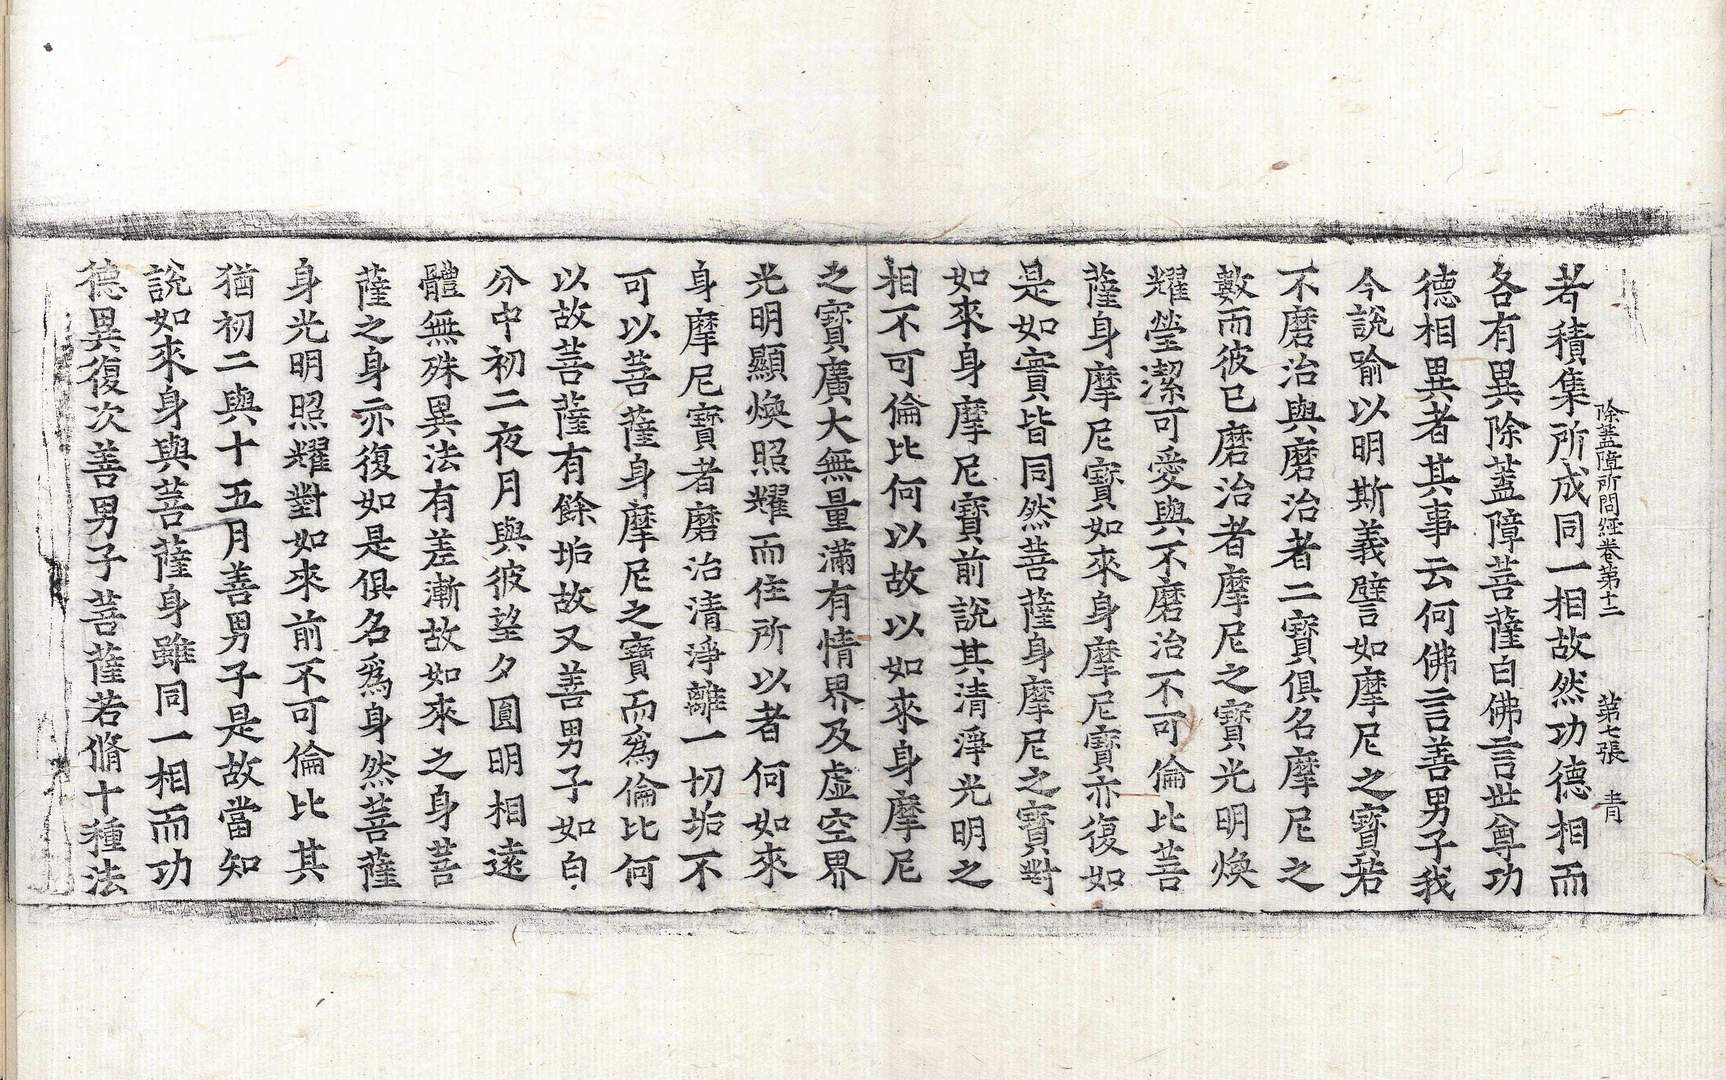 除蓋障所問經卷第十二 第七張 青
者積集所成同一相故然功德相而
各有異除蓋障菩薩白佛言世尊功
德相異者其事云何佛言善男子我
今說喻以明斯義譬如摩尼之寶若
不磨治與磨治者二寶俱名摩尼之
數而彼已磨治者摩尼之寶光明煥
耀瑩潔可愛與不磨治不可倫比菩
薩身摩尼寶如來身摩尼寶亦復如
是如實皆同然菩薩身摩尼之寶對
如來身摩尼寶前說其清淨光明之
相不可倫比何以故以如來身摩尼
之寶廣大無量滿有情界及虛空界
光明顯煥照耀而住所以者何如來
身摩尼寶者磨治清淨離一切垢不
可以菩薩身摩尼之寶而為倫比何
以故菩薩有餘垢故又善男子如白
分中初二夜月與彼望夕圓明相遠
體無殊異法有差漸故如來之身菩
薩之身亦復如是俱名為身然菩薩
身光明照耀對如來前不可倫比其
猶初二與十五月善男子是故當知
說如來身與菩薩身雖同一相而功
德異復次善男子菩薩若脩十種法